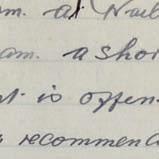 m. at
am. a shor
t is offen
recommend